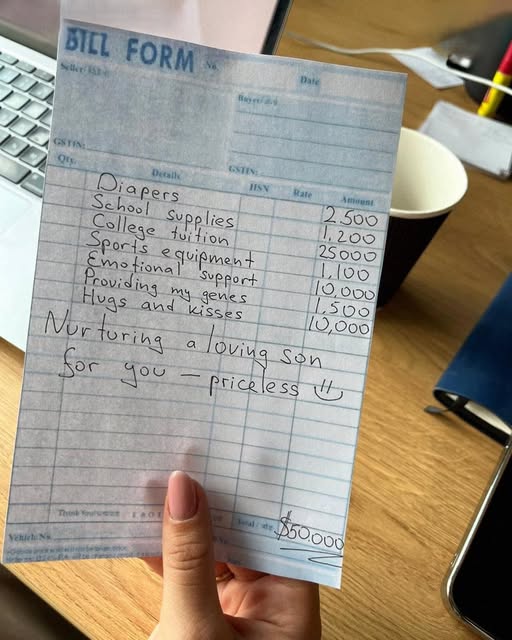 BILL FORM No.
Date
Seller
Buyer
GSTIN:
GSTIN:
Qty. Details HSN Rate Amount
Diapers 2,500
School supplies 1,200
College tuition 25000
Sports equipment 1,100
Emotional support 10,000
Providing my genes 1,500
Hugs and kisses 10,000
Nurturing a loving son
for you — priceless
Total $50,000
Vehicle No.